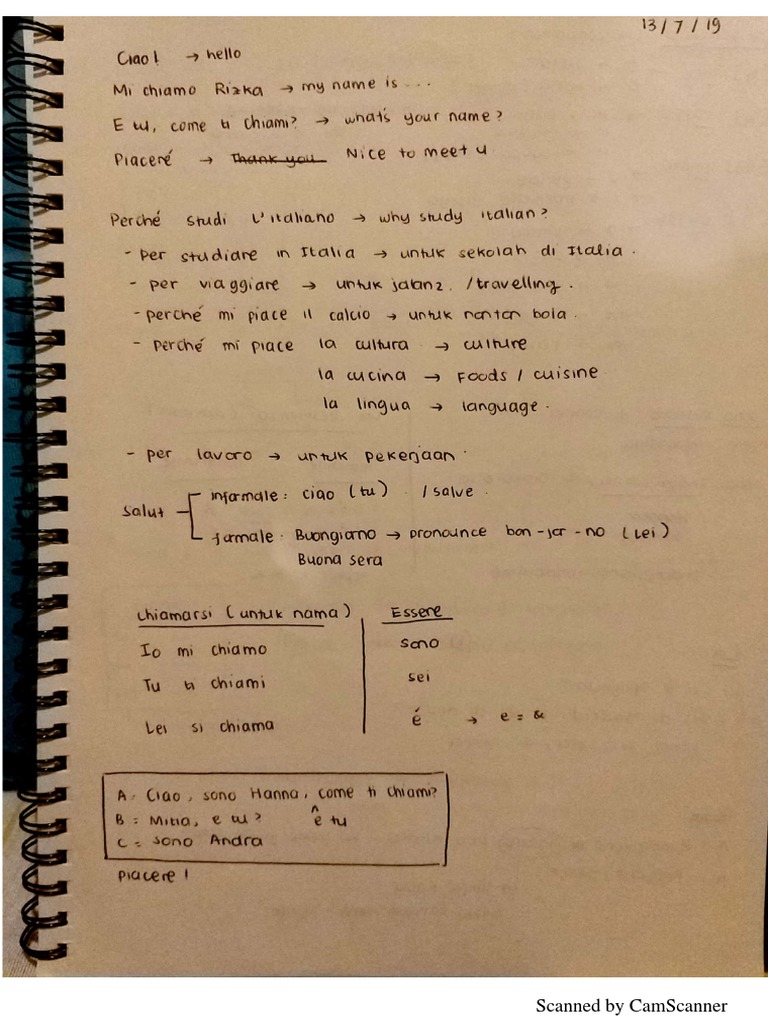 13/7/19
Ciao! → hello
Mi chiamo Rizka → my name is ...
E tu, come ti chiami? → what's your name?
Piaceré → Thank you Nice to meet u
Perché studi l'italiano → why study italian?
- per studiare in Italia → untuk sekolah di Italia.
- per viaggiare → untuk jalan2. /travelling.
- perché mi piace il calcio → untuk nonton bola.
- Perché mi piace la cultura → culture
la cucina → Foods / cuisine
la lingua → language.
- per lavoro → untuk pekerjaan.
salut
informale: ciao (tu) . /salve.
formale: Buongiorno → pronounce bon-jor-no (Lei)
Buona sera
Chiamarsi (untuk nama) Essere
Io mi chiamo sono
Tu ti chiami sei
Lei si chiama é → e = &
A: Ciao, sono Hanna, come ti chiami?
B = Mitia, e tu? ^ e tu
C = Sono Andra
Piacere!
Scanned by CamScanner